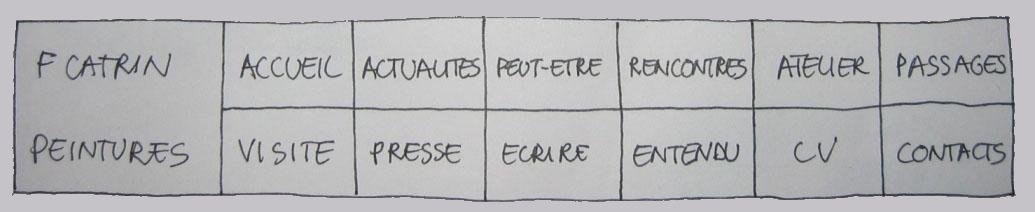 F CATRIN ACCUEIL ACTUALITES PEUT-ETRE RENCONTRES ATELIER PASSAGES
PEINTURES VISITE PRESSE ECRIRE ENTENDU CV CONTACTS